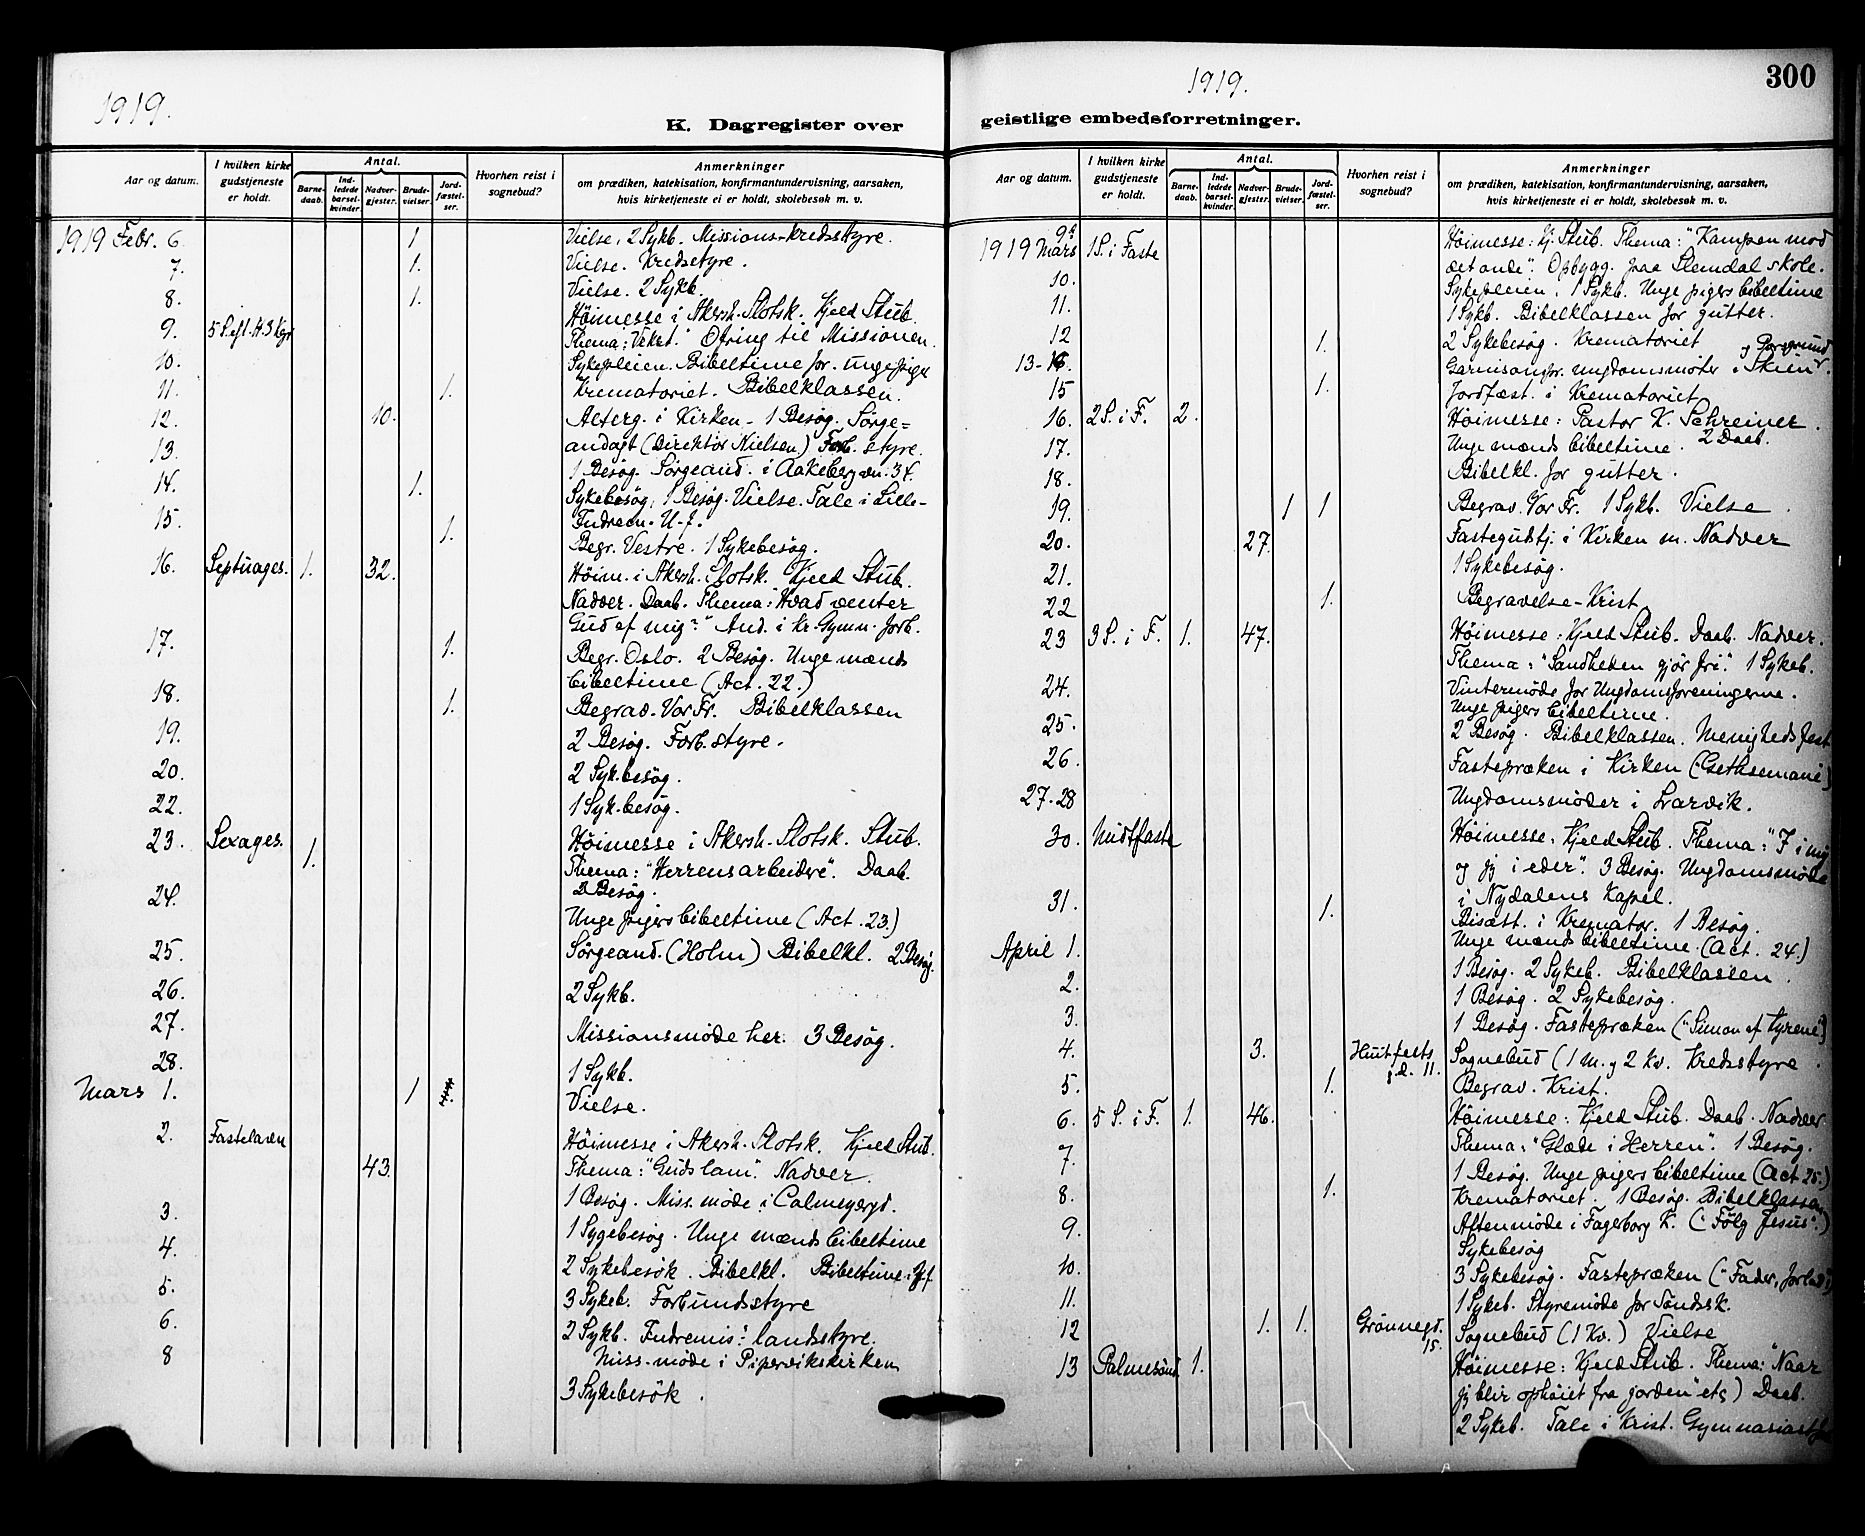 1919.
K. Dagregister over
Aar og datum.
I hvilken kirke gudstjeneste er holdt.
Antal.
Barnedaab.
Indledede barselkvinder.
Nadvergjester.
Brudevielser.
Jordfæstelser.
Hvorhen reist i sognebud?
Anmerkninger
om prædiken, katekisation, konfirmantundervisning, aarsaken,
hvis kirketjeneste ei er holdt, skolebesøk m. v.
1919 Febr. 6. 1. Vielse. 2 Sykb. Missions-kredsstyre.
7. 1. Vielse. Kredsstyre.
8. 1. Vielse. 2 Sykb.
9. 5 S. efl. H. 3 Kgr Höimesse i Akersh. Slotsk. Kjeld Stub.
Thema: "Vekst." Ofring til Missionen.
10. Sykepleien. Bibeltime for unge piger
11. 1. Krematoriet. Bibelklassen.
12. 10. Alterg. i Kirken - 1 Besög. Sörge=
andagt (Direktör Nielsen) Forb. styre.
13. 1 Besög. Sörgeand. i Aakebergvn. 34.
14. 1. Sykebesög, 1 Besög. Vielse. Tale i Lille-
Indrem. U-f.
15. 1. Begr. Vestre. 1 Sykebesög.
16. Septuages. 1. 32. Höim. i Akersh. Slotsk. Kjeld Stub.
Nadver. Daab. Thema: "Hvad venter
Gud af mig?" And. i Kr. Gymn. forb.
17. 1. Begr. Oslo. 2 Besög. Unge mænds
bibeltime (Act. 22.)
18. 1. Begrav. Vor Fr. Bibelklassen
19. 2 Besög. Forb. styre.
20. 2 Sykbesög.
22. 1 Sykbesög.
23. Sexages. 1. Höimesse i Akersh. Slotsk. Stub.
Thema: "Herrens arbeidere". Daab.
2 Besög.
24. Unge pigers bibeltime (Act. 23.)
25. Sörgeand. (Holm) Bibelkl. 2 Besög.
26. 2 Sykb.
27. Missionsmöde her. 3 Besög.
28. 1 Sykb.
Mars 1. 1 Vielse.
2. Fastelaven Höimesse i Akersh. Slotsk. Kjeld Stub.
43. Thema: "Guds lam". Nadver.
1 Besög. Miss. möde i Calmeyergd.
3. 1 Sygebesög. Unge mænds bibeltime
4. 2 Sykebesök. Bibelkl. Bibeltime i
5. 3 Sykeb. Forbundsstyre
6. 2 Sykb. Indremis: landsstyre.
Miss-möde i Pipervikskirken
8 3 Sykebesök.
1919.
300
geistlige embedsforretninger.
Aar og datum.
I hvilken kirke gudstjeneste er holdt.
Antal.
Barnedaab.
Indledede barselkvinder.
Nadvergjester.
Brudevielser.
Jordfæstelser.
Hvorhen reist i sognebud?
Anmerkninger
om prædiken, katekisation, konfirmantundervisning, aarsaken,
hvis kirketjeneste ei er holdt, skolebesøk m. v.
1919 Mars 9. 1 S. i Faste Höimesse: Kj. Stub. Thema: "Kampen mod
det onde". Opbygg. paa Slemdal skole.
10. Sykepleien. 1 Sykb. Unge pigers bibeltime
11. 1 Sykb. Bibelklassen for gutter.
12 1. 2 Sykebesög. Krematoriet
13-16. Garnisonspr. ungdomsmöter i Skien og Porsgrund.
15 1. Jordfæst. i Krematoriet
16. 2 S. i F. 2. Höimesse: Pastor K. Schreiner.
2 Daab.
17. Unge mænds bibeltime.
18. Bibelkl. for gutter.
19. 1 1 Begrav. Vor Fr. 1 Sykb. Vielse.
20. 27. Fastegudstj. i Kirken m. Nadver
21. 1 Sykebesög.
22 1. Begravelse - Krist
23 3 S. i F. 1. 47. Höimesse: Kjeld Stub. Daab. Nadver.
Thema: "Sandheden gjör fri." 1 Sykeb.
24. Vintermöde for Ungdomsforeningerne.
Unge pigers bibeltime.
25. 2 Besög. Bibelklassen. Menighedsfest
26. Fastepræken i Kirken ("Gethsemane")
27-28 Ungdomsmöder i Larvik.
30. Midtfaste Höimesse: Kjeld Stub. Thema: "I i mig
og jeg i eder". 3 Besög. Ungdomsmöde
i Nydalens Kapel.
31. 1. Bisætt. i Kremator. 1 Besög.
Unge mænds bibeltime. (Act. 24.)
April 1. 1 Besög. 2 Sykeb. Bibelklassen.
2. 1 Besög. 2 Sykebesög.
3. 1 Besög. Fastepræken ("Simon af Kyrene")
4. 3. Huitfelts gd. 11. Sognebud (1 M. og 2 Kv. Kredsstyre.
5. 1. Begrav. Krist.
6. 5 S. i F. 1. 46. Höimesse: Kjeld Stub. Daab. Nadver
Thema: "Glæde i Herren". 1 Besög.
7. 1 Besög. Unge pigers bibeltime (Act 25.)
8. 1. Krematoriet. 1 Besög. Bibelklassen
9. Aftenmöde i Fagerborg K. ("Fölg Jesus".)
Sykebesög
10. 3 Sykebesög. Fastepræken ("Fader, forlad")
11. 1 Sykeb. Styremöde for Söndsk.
12 1. 1. Grönnegd. 15. Sognebud (1 Kv.) Vielse
13 Palmesönd. 1. Höimesse: Kjeld Stub. Thema: "Naar
jeg blir ophöiet fra jorden" etc) Daab.
2 Sykeb. Tale i Krist. Gymnasiastf